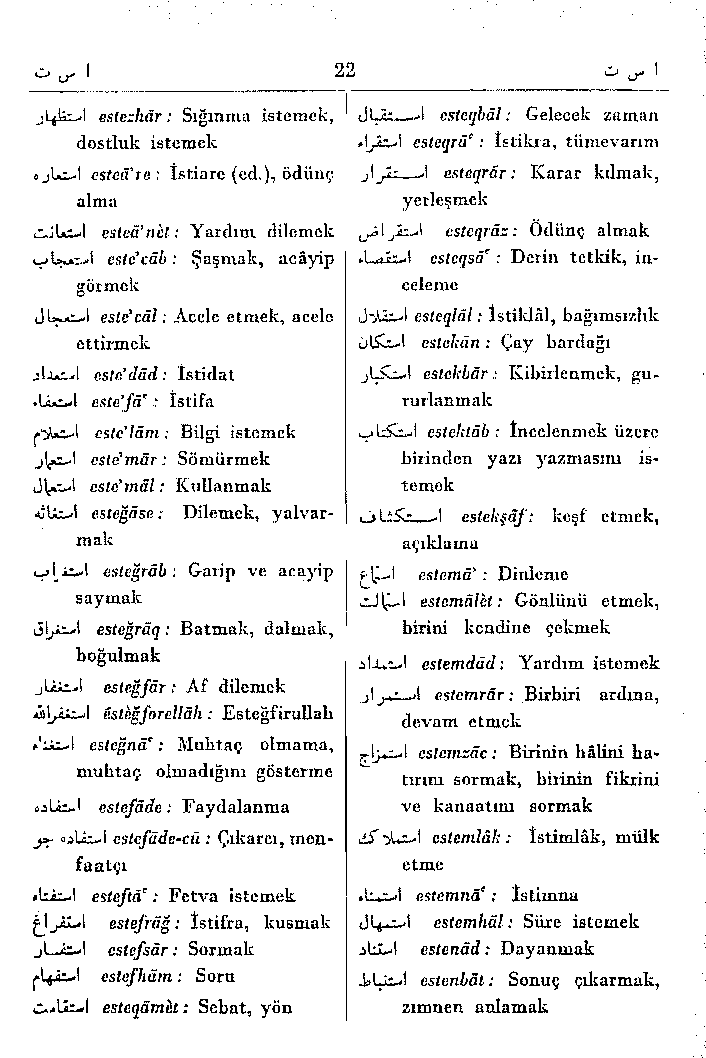 ا س ت 22 ا س ت
استظهار estezhār: Sığınma istemek,
dostluk istemek
استعاره esteā're: İstiare (ed.), ödünç
alma
استعانت esteā'nèt: Yardım dilemek
استعجاب este'cāb: Şaşmak, acâyip
görmek
استعجال este'cāl: Acele etmek, acele
ettirmek
استعداد este'dād: İstidat
استعفاء este'fāʿ: İstifa
استعلام este'lām: Bilgi istemek
استعمار este'mār: Sömürmek
استعمال este'māl: Kullanmak
استغاثه esteğāse: Dilemek, yalvar-
mak
استغراب esteğrāb: Garip ve acayip
saymak
استغراق esteğrāq: Batmak, dalmak,
boğulmak
استغفار esteğfār: Af dilemek
استغفرالله éstèğforellāh: Esteğfirullah
استغناء esteğnāʿ: Muhtaç olmama,
muhtaç olmadığını gösterme
استفاده estefāde: Faydalanma
استفاده جو estefāde-cū: Çıkarcı, men-
faatçı
استفتاء esteftāʿ: Fetva istemek
استفراغ estefrāğ: İstifra, kusmak
استفسار estefsār: Sormak
استفهام estefhām: Soru
استقامت esteqāmèt: Sebat, yön
استقبال esteqbāl: Gelecek zaman
استقراء esteqrāʿ: İstikra, tümevarım
استقرار esteqrār: Karar kılmak,
yerleşmek
استقراض esteqrāz: Ödünç almak
استقصاء esteqsāʿ: Derin tetkik, in-
celeme
استقلال esteqlāl: İstiklâl, bağımsızlık
استکان estekān: Çay bardağı
استکبار estekbār: Kibirlenmek, gu-
rurlanmak
استکتاب estektāb: İncelenmek üzere
birinden yazı yazmasını is-
temek
استکشاف estekşāf: keşf etmek,
açıklama
استماع estemā': Dinleme
استمالت estemālèt: Gönlünü etmek,
birini kendine çekmek
استمداد estemdād: Yardım istemek
استمرار estemrār: Birbiri ardına,
devam etmek
استمزاج estemzāc: Birinin hâlini ha-
tırını sormak, birinin fikrini
ve kanaatını sormak
استملاك estemlâk: İstimlâk, mülk
etme
استمناء estemnāʿ: İstimna
استمهال estemhāl: Süre istemek
استناد estenād: Dayanmak
استنباط estenbāt: Sonuç çıkarmak,
zımnen anlamak